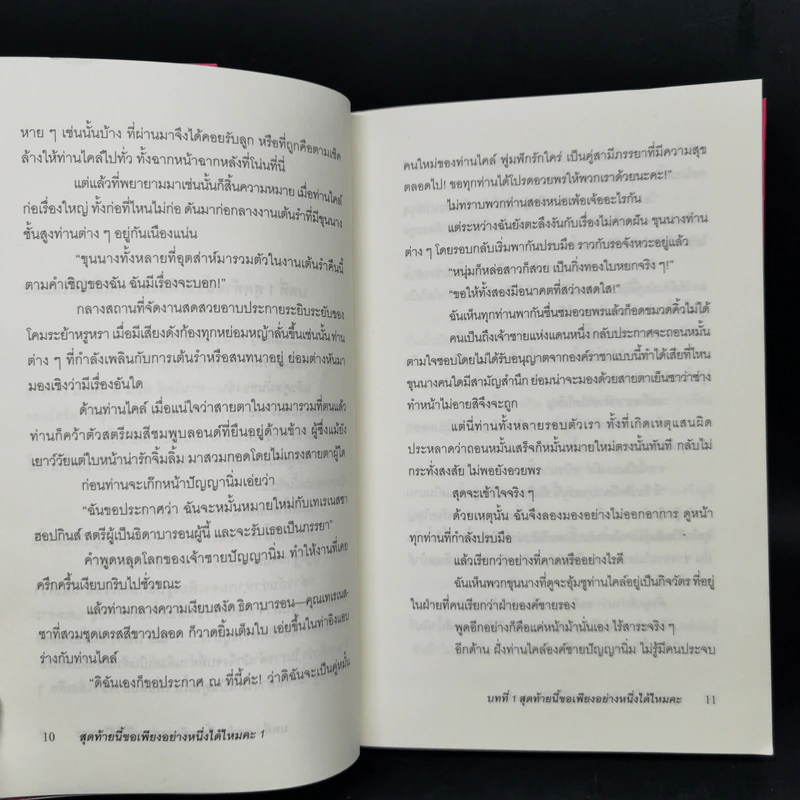 หาย ๆ เช่นนั้นบ้าง ที่ผ่านมาจึงได้คอยรับลูก หรือที่ถูกคือตามเช็ด
ล้างให้ท่านไคล์ไปทั่ว ทั้งฉากหน้าฉากหลังที่โน่นที่นี่
แต่แล้วที่พยายามมาเช่นนั้นก็สิ้นความหมาย เมื่อท่านไคล์
ก่อเรื่องใหญ่ ทั้งก่อที่ไหนไม่ก่อ ดันมาก่อกลางงานเต้นรำที่มีขุนนาง
ชั้นสูงท่านต่าง ๆ อยู่กันเนืองแน่น
“ขุนนางทั้งหลายที่อุตส่าห์มารวมตัวในงานเต้นรำคืนนี้
ตามคำเชิญของฉัน ฉันมีเรื่องจะบอก!”
กลางสถานที่จัดงานสดสวยอาบประกายระยิบระยับของ
โคมระย้าหรูหรา เมื่อมีเสียงดังก้องทุกหย่อมหญ้าลั่นขึ้นเช่นนั้น ท่าน
ต่าง ๆ ที่กำลังเพลินกับการเต้นรำหรือสนทนาอยู่ ย่อมต่างหันมา
มองเชิงว่ามีเรื่องอันใด
ด้านท่านไคล์ เมื่อแน่ใจว่าสายตาในงานมารวมที่ตนแล้ว
ท่านก็คว้าตัวสตรีผมสีชมพูบลอนด์ที่ยืนอยู่ด้านข้าง ผู้ซึ่งแม้ยัง
เยาว์วัยแต่ใบหน้าน่ารักจิ้มลิ้ม มาสวมกอดโดยไม่เกรงสายตาผู้ใด
ก่อนท่านจะเก๊กหน้าปัญญานิ่มเอ่ยว่า
“ฉันขอประกาศว่า ฉันจะหมั้นหมายใหม่กับเทเรเนสซา
ฮอปกินส์ สตรีผู้เป็นธิดาบารอนผู้นี้ และจะรับเธอเป็นภรรยา”
คำพูดหลุดโลกของเจ้าชายปัญญานิ่ม ทำให้งานที่เคย
ครึกครื้นเงียบกริบไปชั่วขณะ
แล้วท่ามกลางความเงียบสงัด ธิดาบารอน—คุณเทเรเนส-
ซาที่สวมชุดเดรสสีขาวปลอด ก็วาดยิ้มเต็มใบ เอ่ยขึ้นในท่าอิงแอบ
ร่างกับท่านไคล์
“ดิฉันเองก็ขอประกาศ ณ ที่นี้ค่ะ! ว่าดิฉันจะเป็นคู่หมั้น
10 สุดท้ายนี้ขอเพียงอย่างหนึ่งได้ไหมคะ 1
คนใหม่ของท่านไคล์ ฟูมฟักรักใคร่ เป็นคู่สามีภรรยาที่มีความสุข
ตลอดไป! ขอทุกท่านได้โปรดอวยพรให้พวกเราด้วยนะคะ!”
ไม่ทราบพวกท่านสองหน่อเพ้อเจ้ออะไรกัน
แต่ระหว่างฉันยังตะลึงงันกับเรื่องไม่คาดฝัน ขุนนางท่าน
ต่าง ๆ โดยรอบกลับเริ่มพากันปรบมือ ราวกับรอจังหวะอยู่แล้ว
“หนุ่มก็หล่อสาวก็สวย เป็นกิ่งทองใบหยกจริง ๆ!”
“ขอให้ทั้งสองมีอนาคตที่สว่างสดใส!”
ฉันเห็นทุกท่านพากันชื่นชมอวยพรแล้วก็อดขมวดคิ้วไม่ได้
คนเป็นถึงเจ้าชายแห่งแดนหนึ่ง กลับประกาศจะถอนหมั้น
ตามใจชอบโดยไม่ได้รับอนุญาตจากองค์ราชาแบบนี้ทำได้เสียที่ไหน
ขุนนางคนใดมีสามัญสำนึก ย่อมน่าจะมองด้วยสายตาเย็นชาว่าช่าง
ทำหน้าไม่อายสิจึงจะถูก
แต่นี่ท่านทั้งหลายรอบตัวเรา ทั้งที่เกิดเหตุแสนผิด
ประหลาดว่าถอนหมั้นเสร็จก็หมั้นหมายใหม่ตรงนั้นทันที กลับไม่
กระทั่งสงสัย ไม่พอยังอวยพร
สุดจะเข้าใจจริง ๆ
ด้วยเหตุนั้น ฉันจึงลองมองอย่างไม่ออกอาการ ดูหน้า
ทุกท่านที่กำลังปรบมือ
แล้วเรียกว่าอย่างที่คาดหรืออย่างไรดี
ฉันเห็นพวกขุนนางที่ดูจะอุ้มชูท่านไคล์อยู่เป็นกิจวัตร ที่อยู่
ในฝ่ายที่คนเรียกว่าฝ่ายองค์ชายรอง
พูดอีกอย่างก็คือแค่หน้าม้านั่นเอง ไร้สาระจริง ๆ
อีกด้าน ฝั่งท่านไคล์องค์ชายปัญญานิ่ม ไม่รู้มีคนประจบ
บทที่ 1 สุดท้ายนี้ขอเพียงอย่างหนึ่งได้ไหมคะ 11